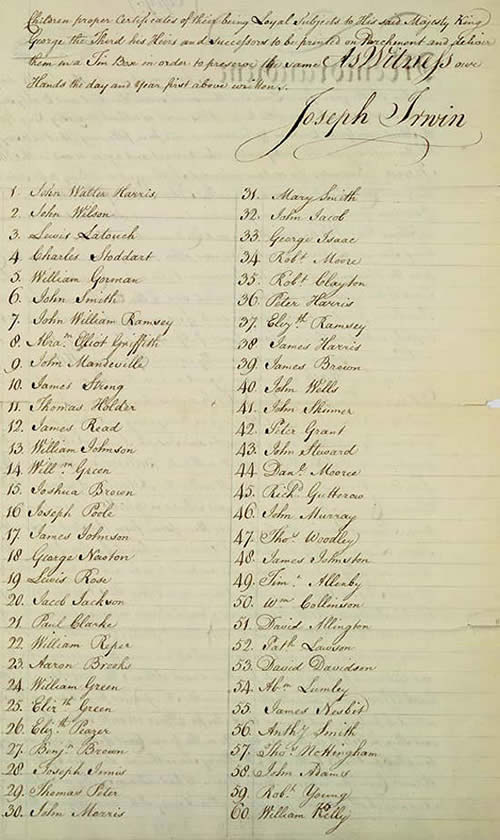 Children proper Certificates of their being Loyal Subjects to His said Majesty King
George the Third his Heirs and Successors to be printed on Parchment and deliver
them in a Tin Box in order to preserve the same As Witness our
Hands the day and Year first above written.
Joseph Irwin
1. John Walter Harris
2. John Wilson
3. Lewis Latouch
4. Charles Stoddart
5. William Gorman
6. John Smith
7. John William Ramsey
8. Abram Elliot Griffith
9. John Mandeville
10. James Strong
11. Thomas Holder
12. James Read
13. William Johnson
14. Willm Green
15. Joshua Brown
16 Joseph Poole
17. James Johnson
18 George Newton
19 Lewis Rose
20. Jacob Jackson
21 Paul Clarke
22. William Roper
23. Aaron Brooks
24. William Green
25. Elizth Green
26. Elizth Peazer
27. Benjn Brown
28. Joseph Innis
29. Thomas Peter
30. John Morris
31. Mary Smith
32. John Jacob
33 George Isaac
34 Robt Moore
35. Robt Clayton
36 Peter Harris
37. Elizth Ramsey
38 James Harris
39. James Brown
40. John Wells
41. John Skinner
42. Peter Grant
43. John Steward
44. Danl Moorce
45. Richd Gutterow
46. John Murray
47. Thos Woodley
48. James Johnston
49. Timy Allenby
50. Wm Collinson
51. David Allington
52. Path Lawson
53. David Davidson
54. Abm Lumley
55. James Nesbit
56. Anthy Smith
57. Thos Nottingham
58. John Adams
59. Robt Young
60. William Kelly